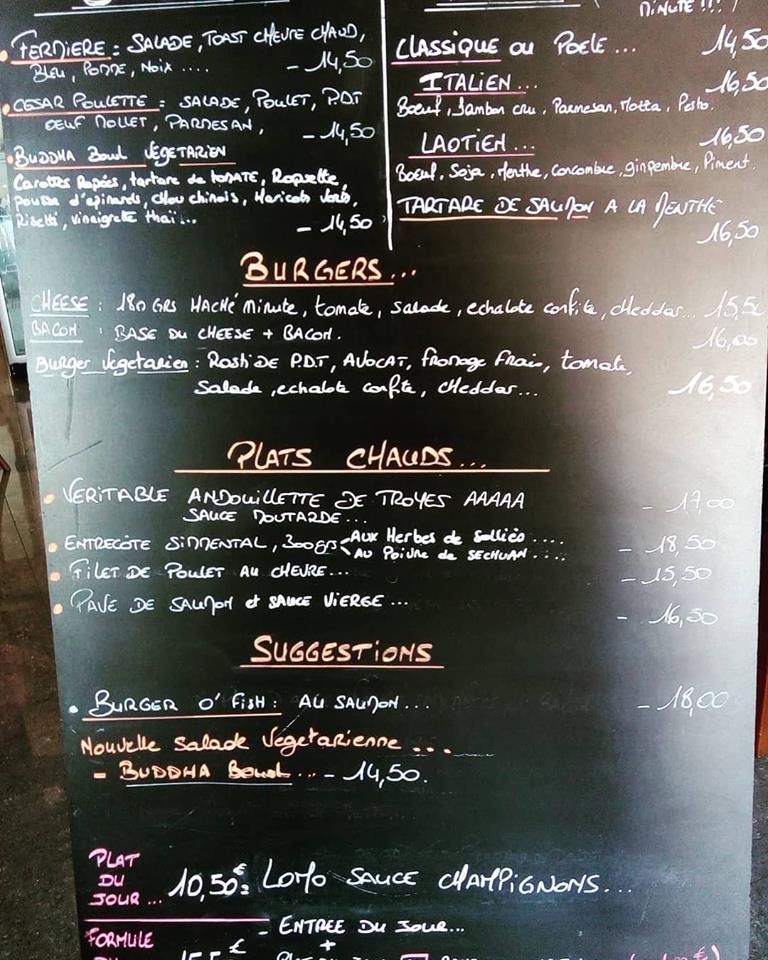 FERMIERE : SALADE, TOAST CHEVRE CHAUD,
BLEU, POMME, NOIX ....
- 14,50
CESAR POULETTE : SALADE, POULET, P.D.T
OEUF MOLLET, PARMESAN,
- 14,50
BUDDHA Bowl VEGETARIEN
Carottes Rapées, tartare de tomate, Roquette,
pousse d'epinards, chou chinois, Haricots verts,
vinaigrette thaï...
- 14,50
MINUTE !!!
CLASSIQUE ou POELE ... 14,50
ITALIEN ... 16,50
Boeuf, Jambon cru, Parmesan, Motta, Pesto.
LAOTIEN ... 16,50
Boeuf, Soja, Menthe, Concombre, gingembre, Piment.
TARTARE DE SAUMON A LA MENTHE
16,50
BURGERS ...
CHEESE : 180 GRS HACHÉ Minute, tomate, salade, echalote confite, cheddar... 15,50
BACON : BASE DU CHEESE + BACON. 16,00
Burger Vegetarien : Rosti DE P.D.T, AVOCAT, fromage frais, tomate,
Salade, echalote confite, cheddar... 16,50
PLATS CHAUDS ...
VERITABLE ANDOUILLETTE DE TROYES AAAAA - 17,00
SAUCE MOUTARDE ...
ENTRECÔTE SIMMENTAL, 300grs Aux Herbes de Solliès .... - 18,50
AU Poivre de SECHUAN ....
FILET DE POULET AU CHEVRE ... - 15,50
PAVE DE SAUMON et SAUCE VIERGE ... - 16,50
SUGGESTIONS
BURGER O' FISH : AU SAUMON ... - 18,00
Nouvelle Salade Vegetarienne ...
- BUDDHA Bowl ... - 14,50.
PLAT
DU
JOUR ... 10,50€: LOMO SAUCE CHAMPIGNONS ...
FORMULE - ENTREE DU JOUR ...
+